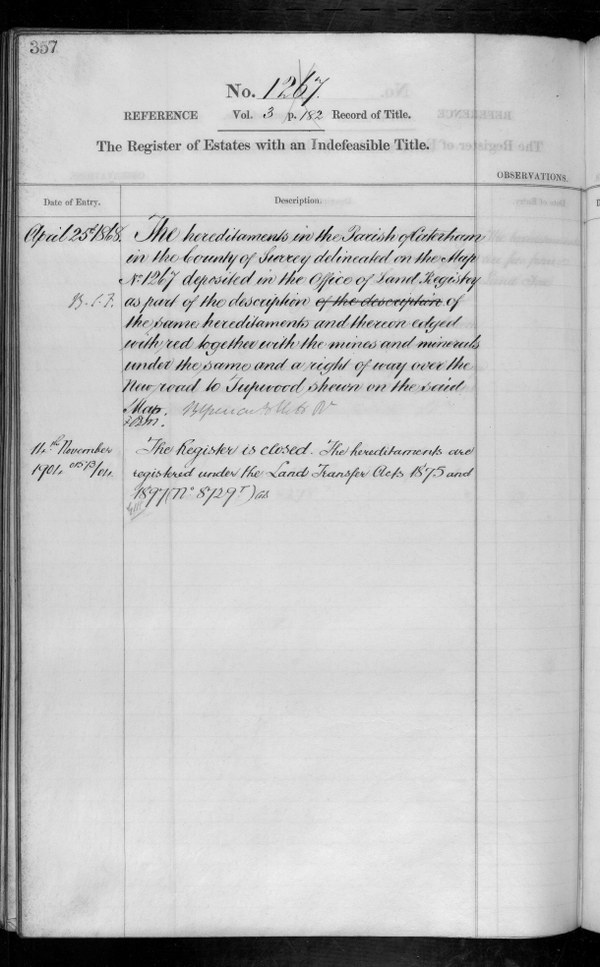 357
No. 1267.
REFERENCE Vol. 3 p. 182 Record of Title.
The Register of Estates with an Indefeasible Title.
OBSERVATIONS.
Date of Entry. Description.
April 25th 1868. The hereditaments in the Parish of Caterham
in the County of Surrey delineated on the Map
No. 1267 deposited in the Office of Land Registry
as part of the description of the description of
the same hereditaments and thereon edged
with red together with the mines and minerals
under the same and a right of way over the
New road to Tupwood shewn on the said
Map.
14th November The Register is closed. The hereditaments are
1904 registered under the Land Transfer Acts 1875 and
1897 (No 8129